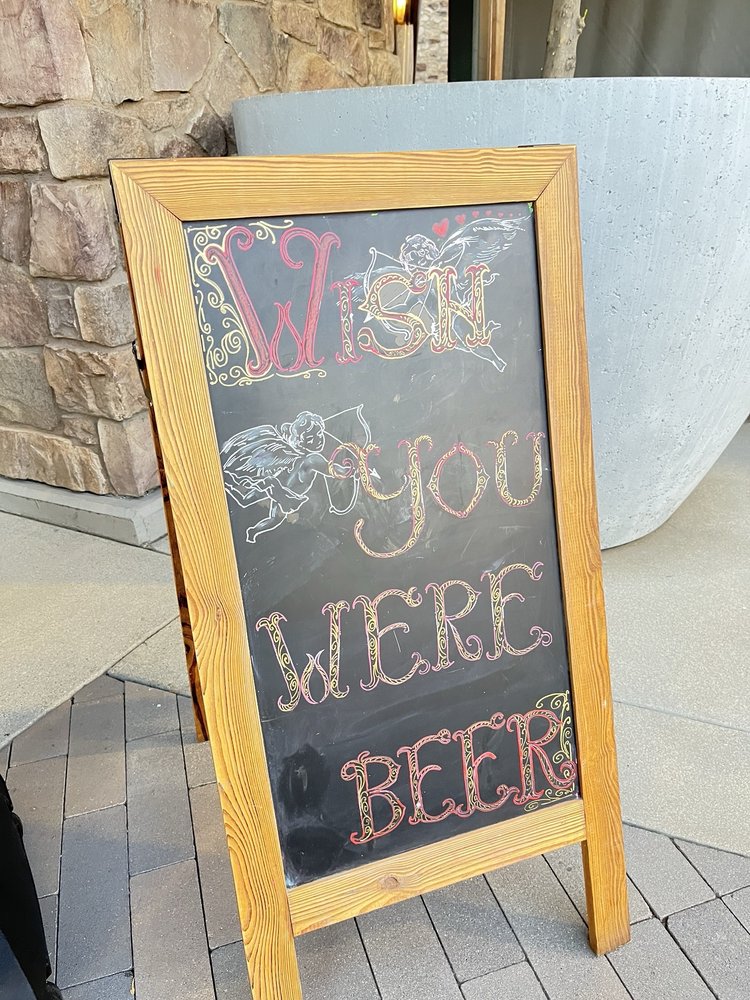 WISH
YOU
WERE
BEER